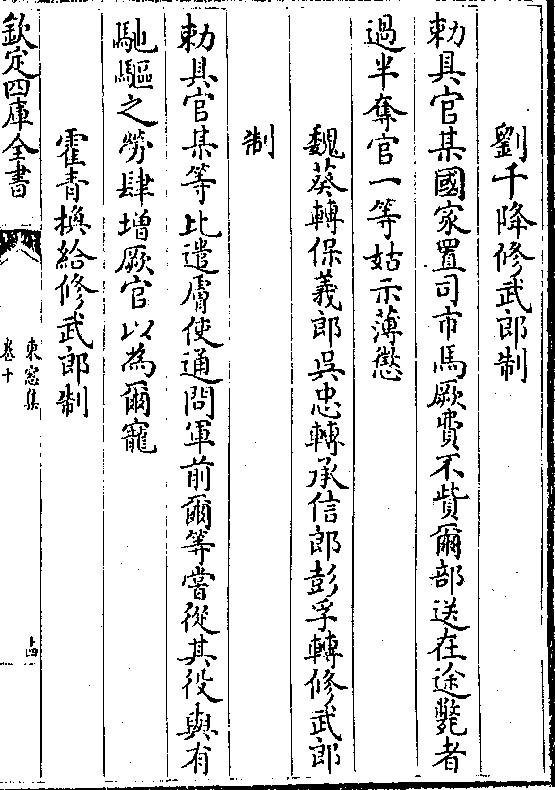 劉千降修武郎制
勅具官某國家置司市馬厥費不貲爾部送在途斃者
過半奪官一等姑示薄懲
魏葵轉保義郎吳忠轉承信郎彭孚轉修武郎
制
勅具官某等比遣膚使通問軍前爾等嘗從其役與有
馳驅之勞肆增厥官以為爾寵
霍青換給修武郎制
欽定四庫全書
東窻集
卷十
十四